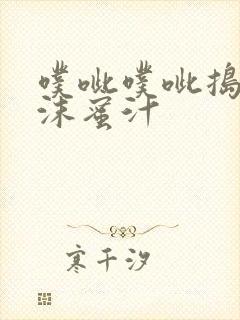 噗呲噗呲搗
沫蜜汁
寒千汐